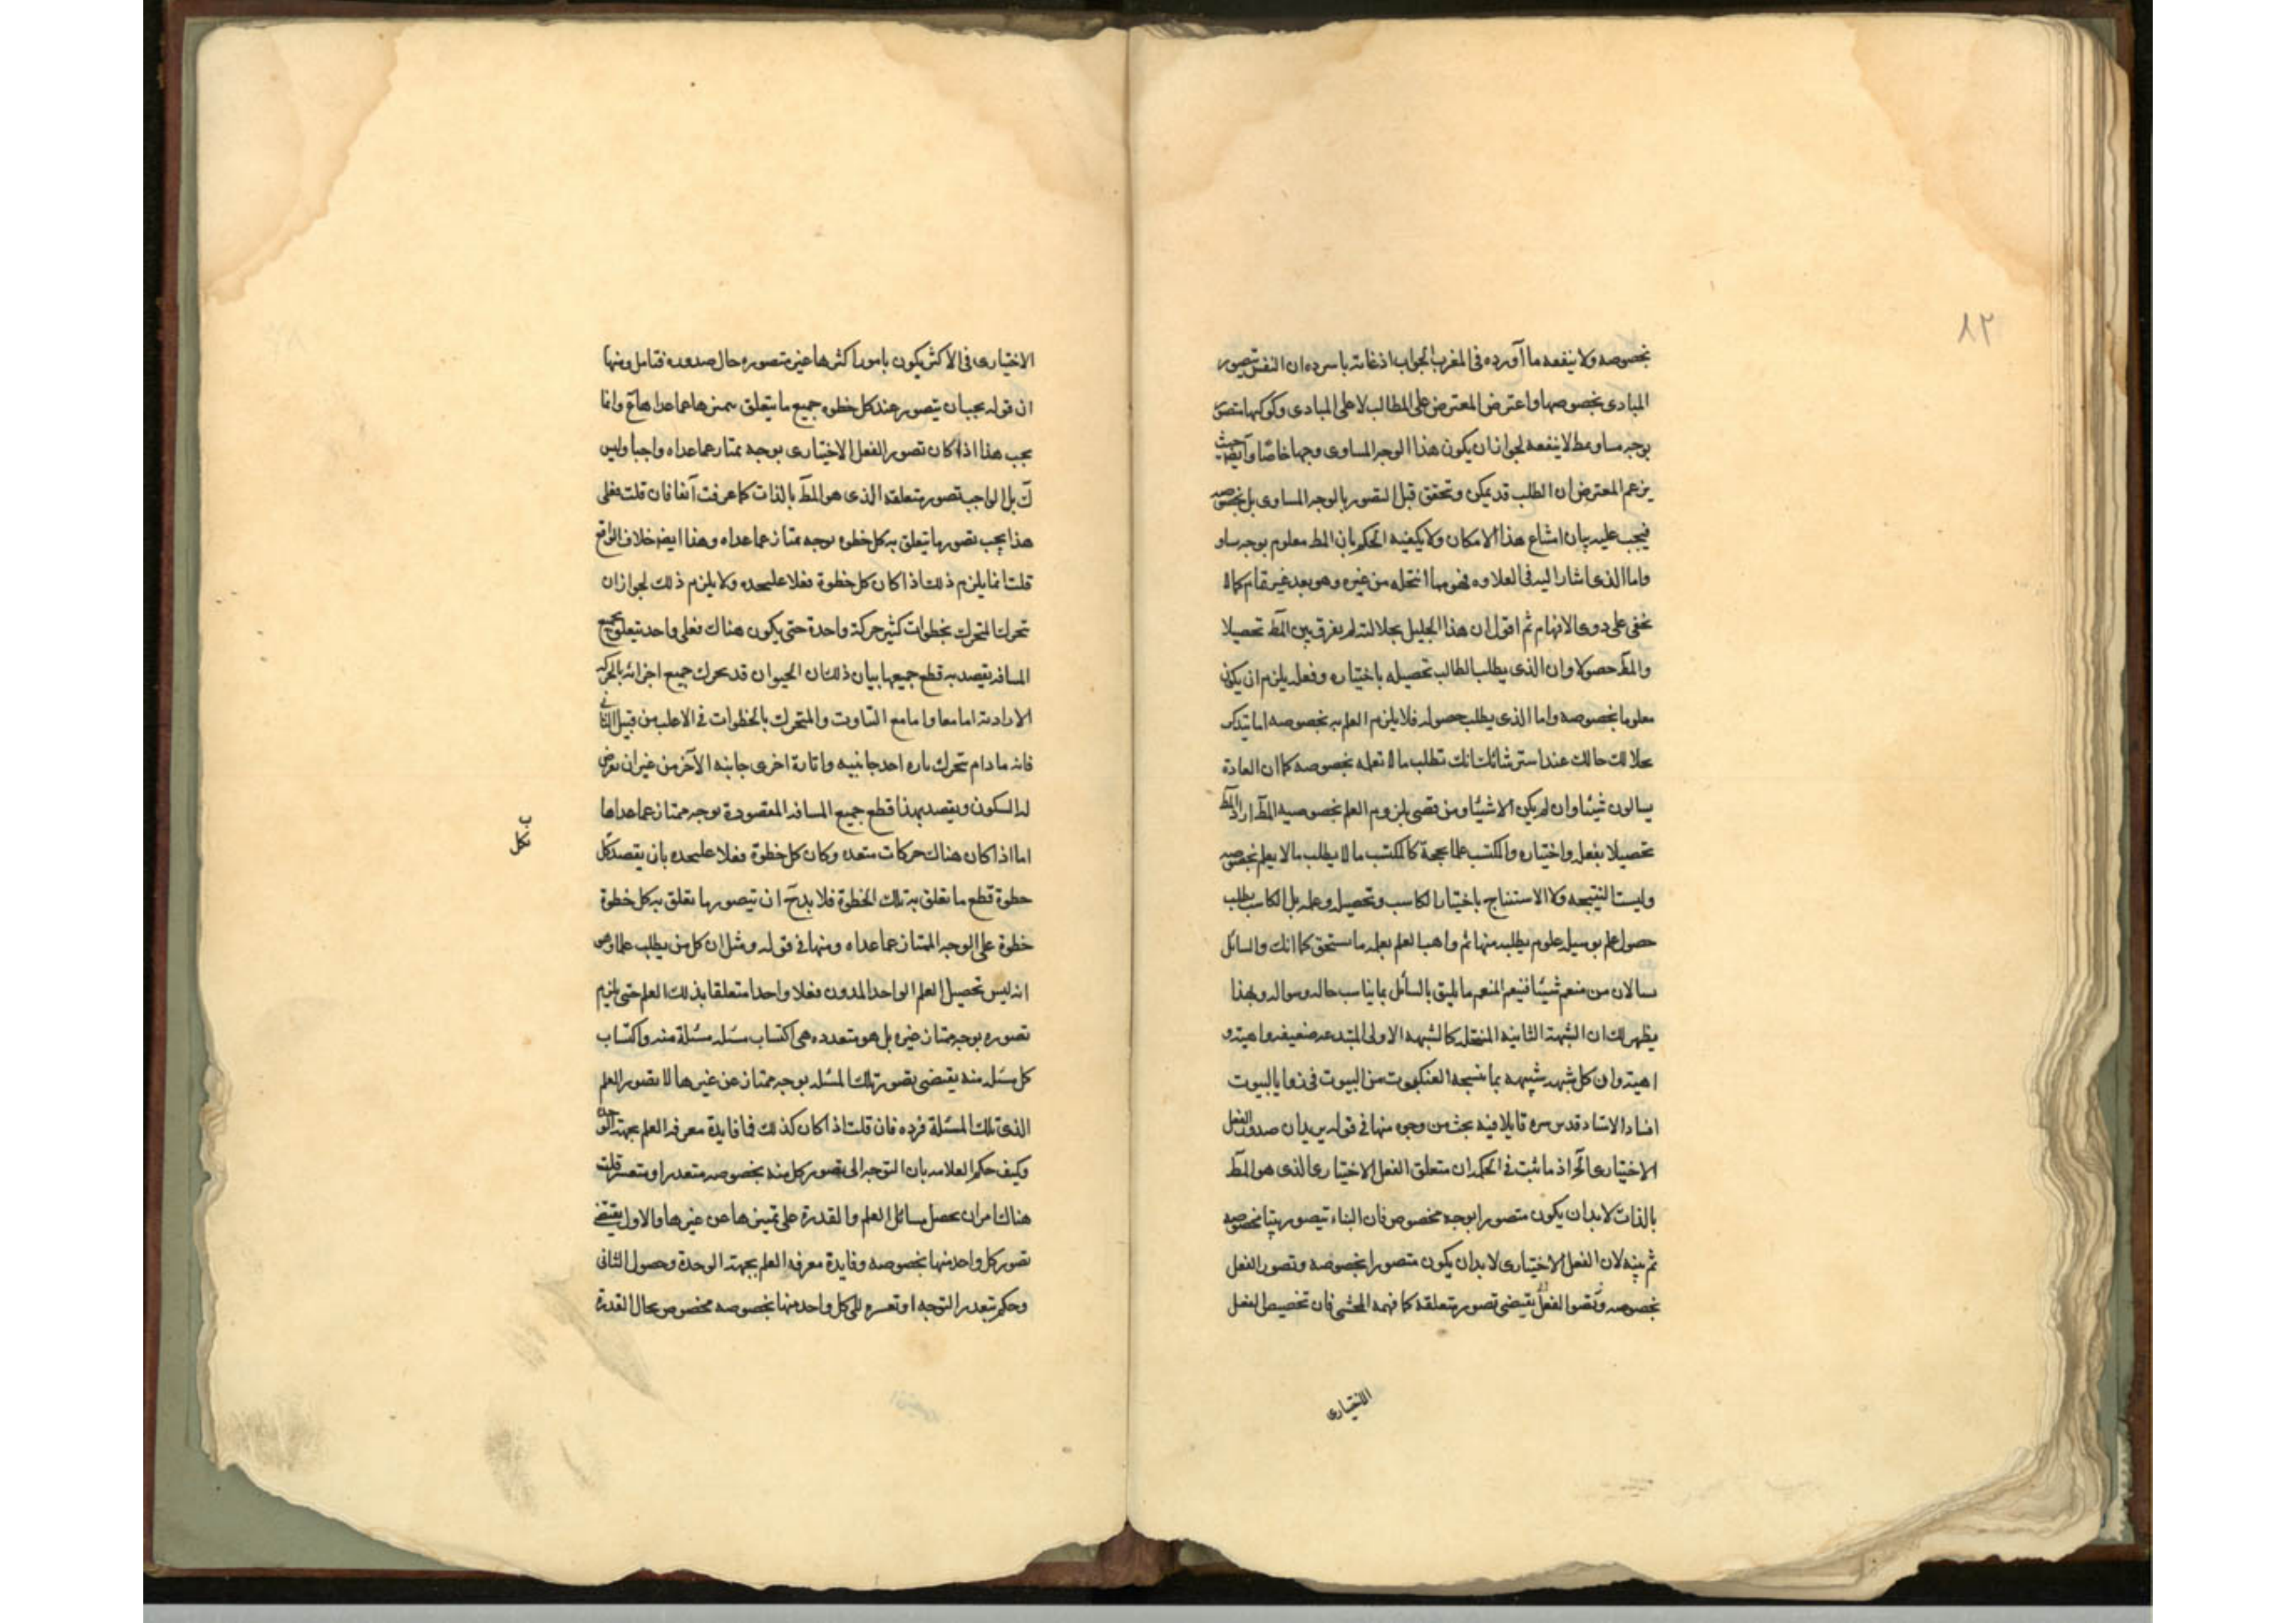 ٨٢
بخصوصه ولا ينفعه ما آورده فى المغرب الجواب اذ غاته باسرده ان النفس تتصور
المبادى بخصوصها واعترض المعترض على المطالب لا على المبادى وكونها متصور
بوجه مساو مط لا ينفعه لجواز ان يكون هذا الوجه المساوى وجها خاصّا وآيضا حيث
يزعم المعترض ان الطلب قد يمكن وتحقق قبل التصور بالوجه المساوى بل بخصوصه
فيجب عليه بيان امتناع هذا الامكان ولا يكفيه الحكم بان المط معلوم بوجه مساو
واما الذى اشار اليه فى العلاوه فهو مما انتحله من غيره وهو بعد غير تمام كما لا
يخفى على ذوى الافهام ثم اقول ان هذا الجليل بجلالته لم يفرق بين المط تحصيلا
والمط حصولا وان الذى يطلب الطالب تحصيله باختياره وفعله يلزم ان يكون
معلوما بخصوصه واما الذى يطلب حصوله فلا يلزم العلم به بخصوصه اما يتذكر
حالك عند استرشائك انك تطلب ما لا تعلمه بخصوصه كما ان العادة
يسالون شيئا وان لم يكن الا شيئا ومن قضى بلزوم العلم بخصوصيه المط اراد المط
تحصيلا بفعله واختياره والمكتسب علما بحجة كالمكتسب مالا يطلب ما لا يعلم بخصوصه
وليست النتيجه ولا الاستنتاج باختيار الكاسب وتحصيله وعمله بل الكاسب يطلب
حصول علم بوسيله علوم يطلبه منها ثم واهب العلم يعلمه ما يستحق كما انك والسائل
سالان من منعم شيئا فينعم المنعم ما يليق بالسائل بما يناسب حاله وسواله ولهذا
يظهر لك ان الشبهة الثانيه المنتحله كالشبهه الاولى المبتدعه ضعيفه واهيته و
اهيته وان كل شبهه شبيهه بما ينسجه العنكبوت من البيوت فى زوايا البيوت
افاد الاستاد قدس سره قايلا فيه بحث من وجوه منها فى قوله يريد ان صدور الفعل
الاختيارى آلخ اذ ما ثبت فى الحكمه ان متعلق الفعل الاختيارى الذى هو المط
بالذات لا بد ان يكون متصورا بوجه مخصوص فان البناء يتصور بيتا بخصوصه
ثم يبنيه لان الفعل الاختيارى لا بد ان يكون متصورا بخصوصه وتصور الفعل
بخصوصه وتصور الفعل يقتضى تصور متعلقه كما فهمه المحشى فان تخصيص الفعل
الاختيارى
الاختيارى فى الاكثر يكون بامور اكثرها غير متصوره حال صدوره فتامل ومنها
ان قوله يجب ان يتصور عند كل خطوه جميع ما يتعلق بميزها عما عداها مم وانما
يجب هذا اذا كان تصور الفعل الاختيارى بوجه ممتاز عما عداه واجبا وليس
كك بل الواجب تصور متعلقه الذى هو المط بالذات كما عرفت آنفا فان قلت فعلى
هذا يجب تصور ما يتعلق به كل خطوه بوجه ممتاز عما عداه وهذا ايضا خلاف الواقع
قلت انما يلزم ذلك اذا كان كل خطوة فعلا عليحده ولا يلزم ذلك لجواز ان
تحرك المتحرك بخطوات كثير حركة واحدة حتى يكون هناك فعلى واحد يتعلق بجميع
المسافه يقصد به قطع جميعها بيان ذلك ان الحيوان قد يحرك جميع اجزائه بالحركه
الاراديه اما معا واما مع التناوب والمتحرك بالخطوات فى الاغلب من قبيل الثانى
فانه ما دام تحرك تاره احد جانبيه وتارة اخرى جانبه الآخر من غير ان يعرض
له السكون ويقصد بهذا قطع جميع المسافه المقصودة بوجه ممتاز عما عداها
اما اذا كان هناك حركات متعدده وكان كل خطوة فعلا عليحده بان يقصد كل
ب
بكل
خطوة قطع ما تعلق به تلك الخطوة فلا بد ح ان يتصور ما تعلق به كل خطوة
خطوة على الوجه الممتاز عما عداه ومنها فى قوله ومثل ان كل من يطلب علما وهو
انه ليس تحصيل العلم الواحد المدون فعلا واحدا متعلقا بذلك العلم حتى يلزم
تصوره بوجه ممتاز غيره بل هو متعدده هى اكتساب مسئله مسئلة منه واكتساب
كل مسئله منه يقتضى تصور تلك المسئله بوجه ممتاز عن غيرها لا تصور العلم
الذى تلك المسئلة فرده فان قلت اذا كان كذلك فما فايدة معرفه العلم بجهة الوحدة
وكيف حكم العلامه بان التوجه الى تصور كل منه بخصوصه متعذر او متعسر قلت
هناك امران تحصل مسائل العلم والقدرة على تميزها عن غيرها والاول يقتضى
تصور كل واحد منها بخصوصه وفايدة معرفه العلم بجهته الوحدة وحصول الثانى
وحكم بتعذر التوجه او تعسره الى كل واحد منها بخصوصه مخصوص بحال القدرة